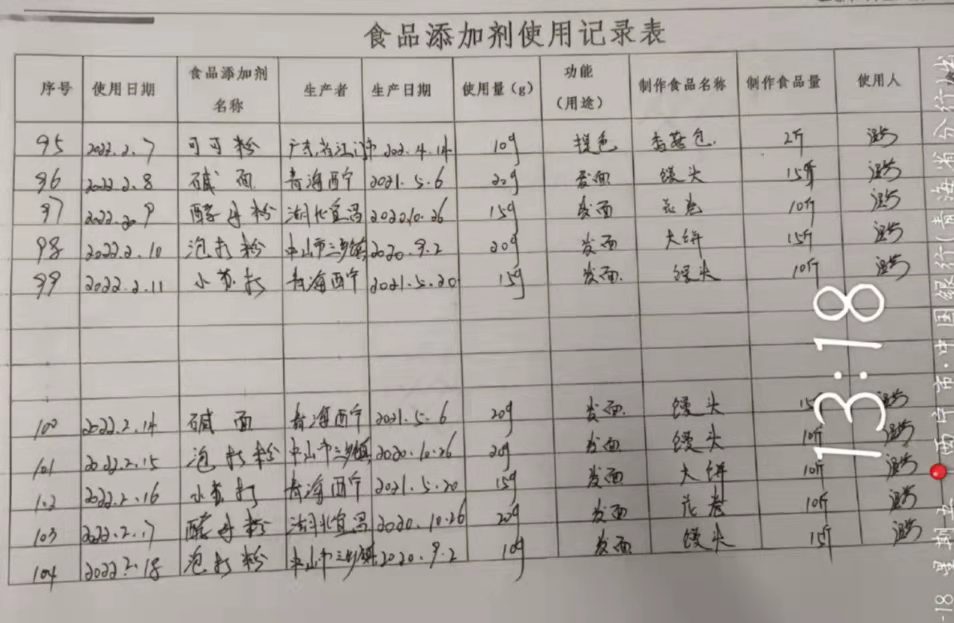 食品添加剂使用记录表
序号 使用日期 食品添加剂名称 生产者 生产日期 使用量（g） 功能（用途） 制作食品名称 制作食品量 使用人
95 2022.2.7 可可粉 广东省江门市 202.4.14 10g 提色 2斤
96 2022.2.8 碱面 青海西宁 2021.5.6 20g 发面 馒头 15斤
97 2022.2.9 酵母粉 湖北宜昌 202010.26 15g 发面 花卷 10斤
98 2022.2.10 泡打粉 中山市三乡镇 2020.9.2 20g 发面 大饼 15斤
99 2022.2.11 小苏打 青海西宁 2021.5.20 15g 发面 馒头 10斤
100 2022.2.14 碱面 青海西宁 2021.5.6 20g 发面 馒头 15
101 2022.2.15 泡打粉 中山市三乡镇 2020.10.26 20g 发面 馒头 10斤
102 2022.2.16 小苏打 青海西宁 2021.5.20 15g 发面 大饼 10斤
103 2022.2.17 酵母粉 湖北宜昌 2020.10.26 20g 发面 花卷 10斤
104 2022.2.18 泡打粉 中山市三乡镇 2020.9.2 10g 发面 馒头 15斤
13:18
-18 星期五
西宁市·中国银行(青海省分行)